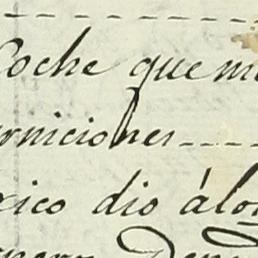 Coche que m
rniciones
xico dio álo